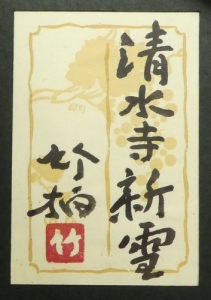 清水寺新雪
竹柄
竹